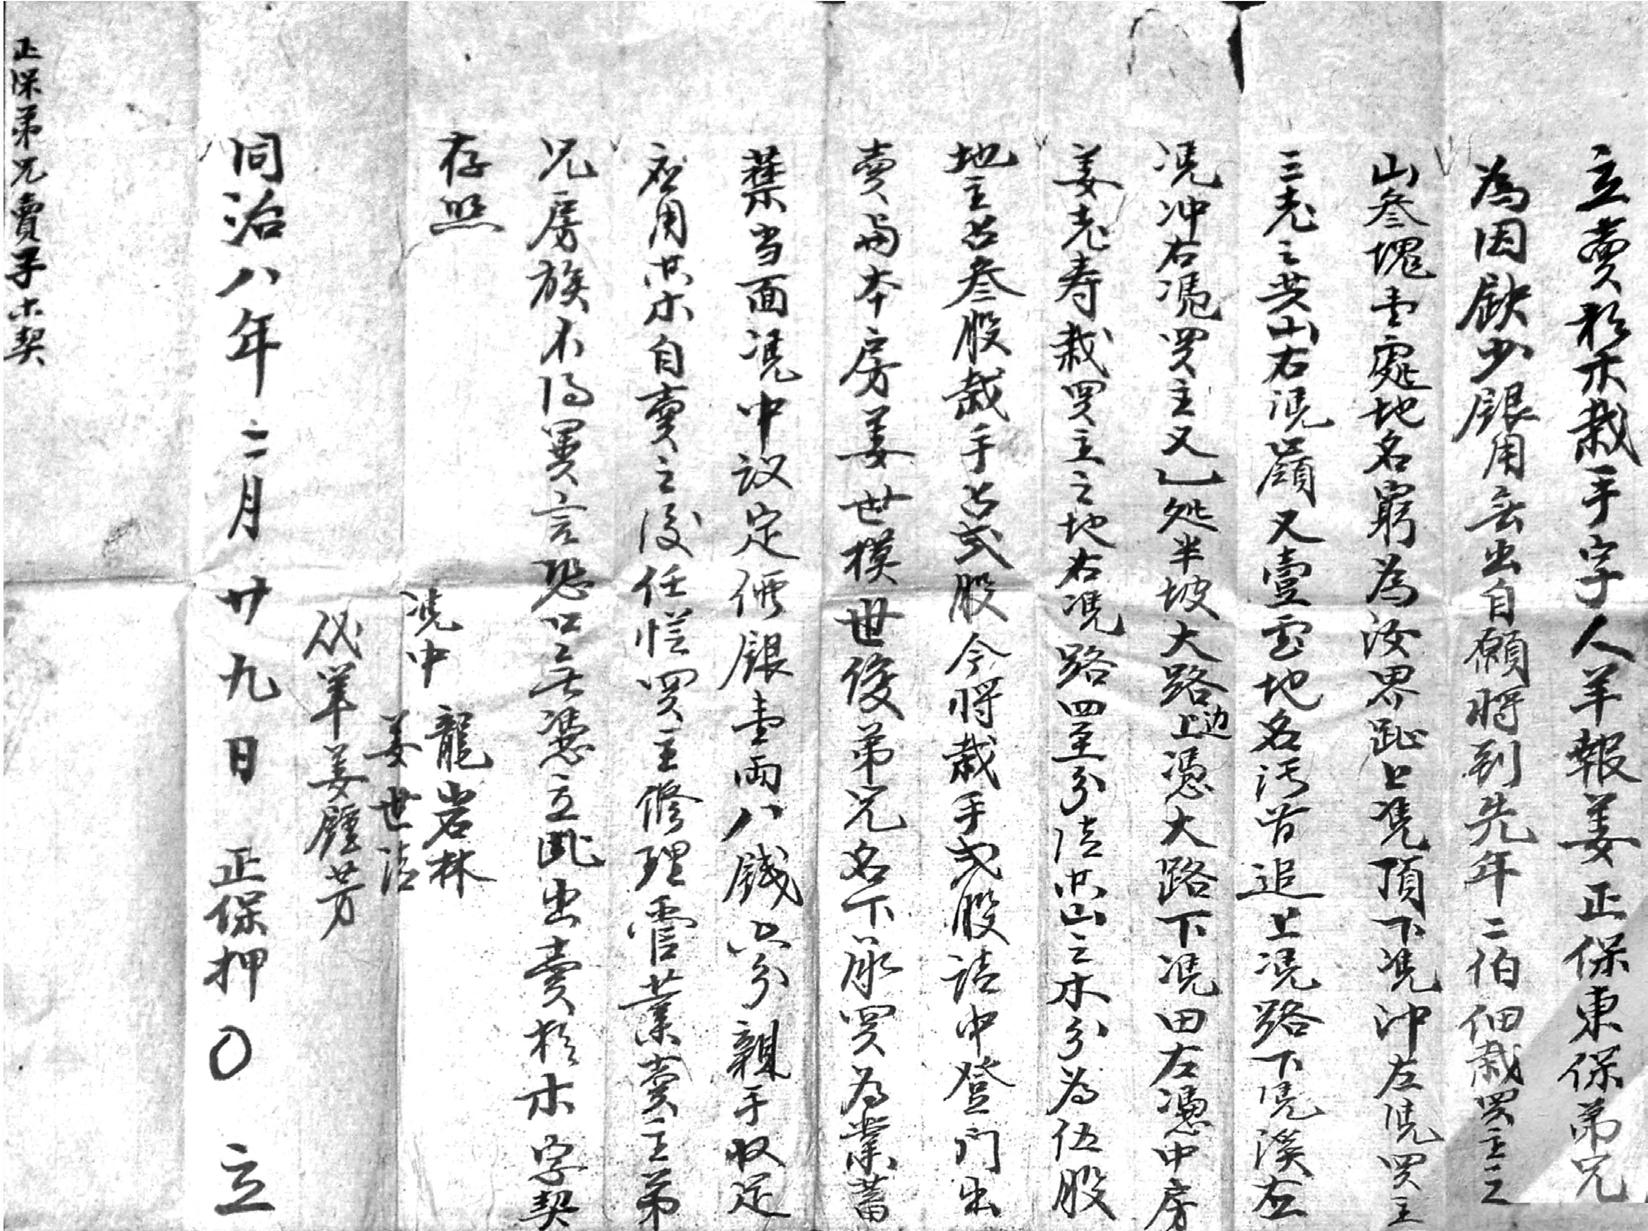 立賣杉木栽手字人羊報姜正保東保弟兄
為因缺少銀用無出自願將到先年二伯佃栽買主之
山叁塊壹處地名窮為汝界趾上凴頂下凴沖左凴買主
三老之共山右凴嶺又壹處地名污首追上凴路下凴溪左
凴冲右凴買主又乙処半坡大路边上憑大路下凴田左憑中房
姜老寿栽買主之地右凴路四至分清其山之木分為伍股
地主占叁股栽手占弍股今将栽手弍股請中登门出
賣與本房姜世模世俊弟兄名下承買為業蓄
禁当面凴中议定價銀壹兩八錢六分親手收足
應用其木自賣之後任慿買主修理管業賣主弟
兄房族不得異言恐口無憑立此出賣杉木字契
存照
凴中 龍岩林
姜世清
代筆姜鍾芳
同治八年二月廿九日 正保押〇 立
正保弟兄賣子木契